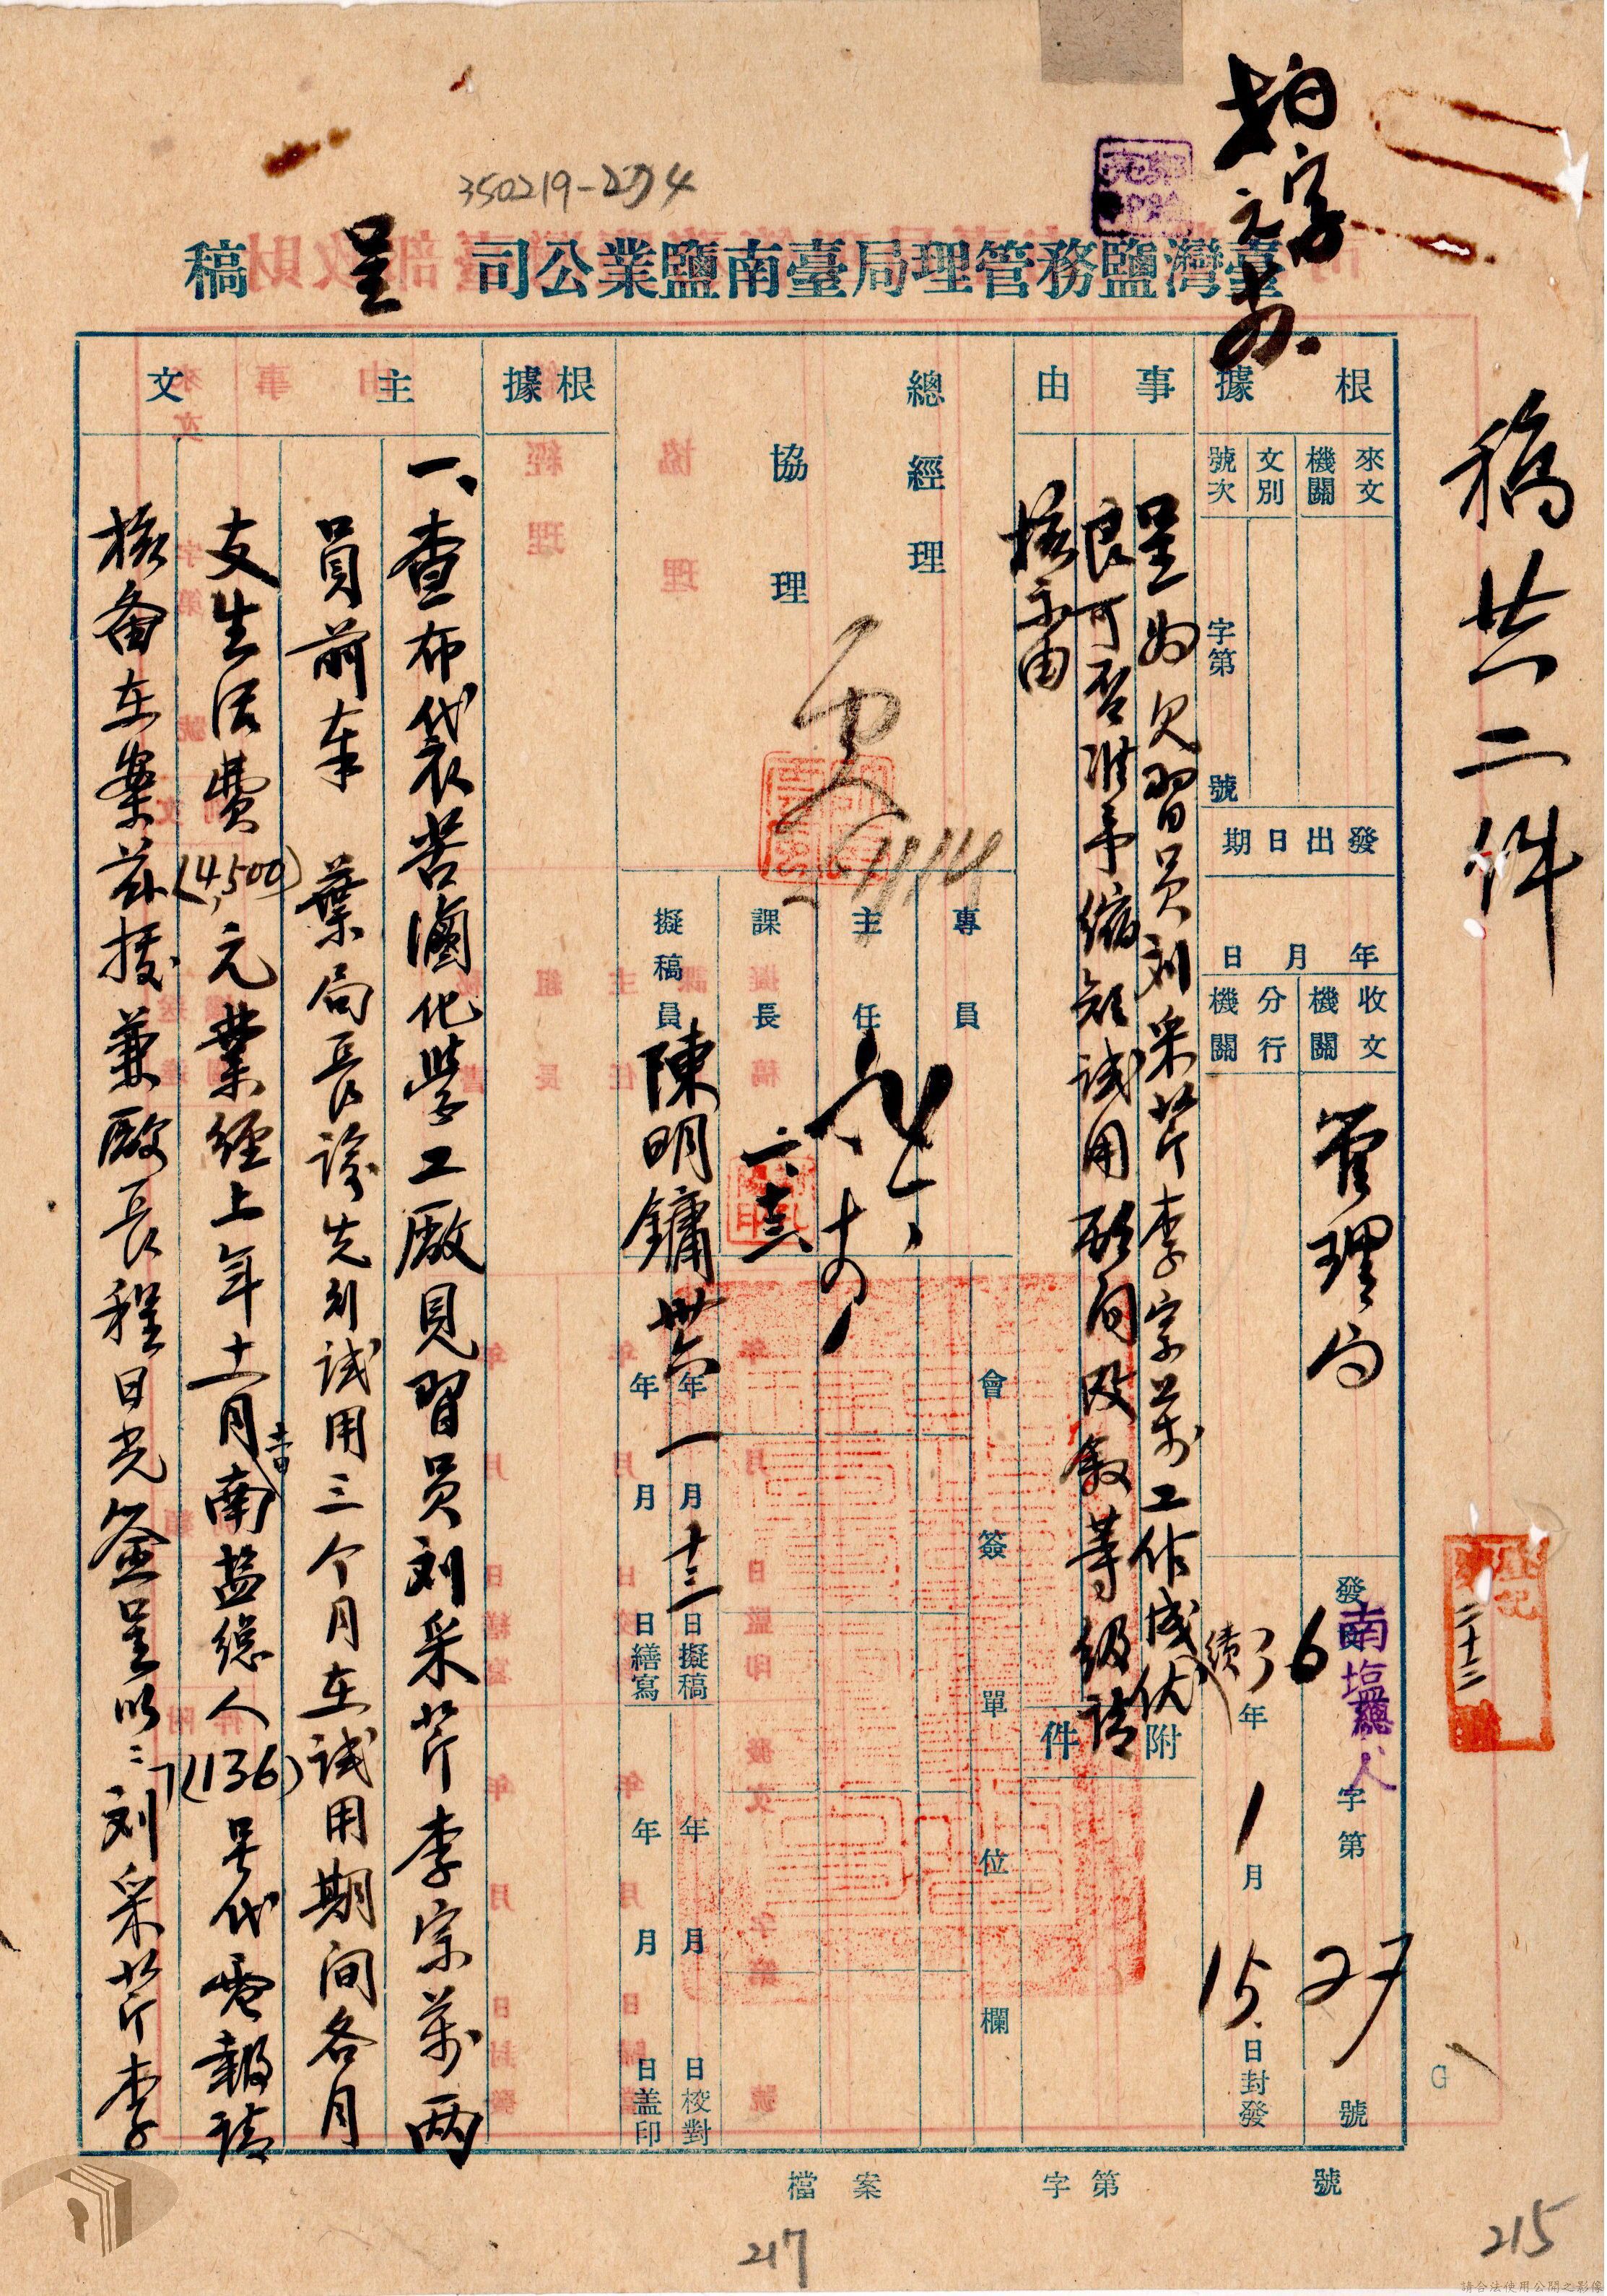 稿共二件
350219-274
臺灣鹽務管理局臺南鹽業公司 呈 稿
根據
來文機關
文別
號次
字第 號
發出日期
年 月 日
收文機關
管理局
分行機關
發 南塩總人 字第 27 號
36年1月15日封發
事由
呈為見習員刘采芹李宗萬工作成績優
良可否准予縮短試用期间改敘等級請
核示由
附件
總經理
協理
11/14
專員
主任
課長
擬稿員 陳明鏞
會簽單位欄
卅六年一月十三日擬稿
年 月 日繕寫
年 月 日校對
年 月 日蓋印
根據
主文
一、查布袋苦滷化學工廠見習員刘采芹李宗萬两
員前奉 葉局長諭先列試用三个月在試用期间各月
支生活費(4,500)元業經上年十一月南盐總人(1136)号代電報請
核备在案茲據兼廠長程日光簽呈以:刘采芹李
檔案 字第 號
登記
二十三
G
217
215
請合法使用公開之影像